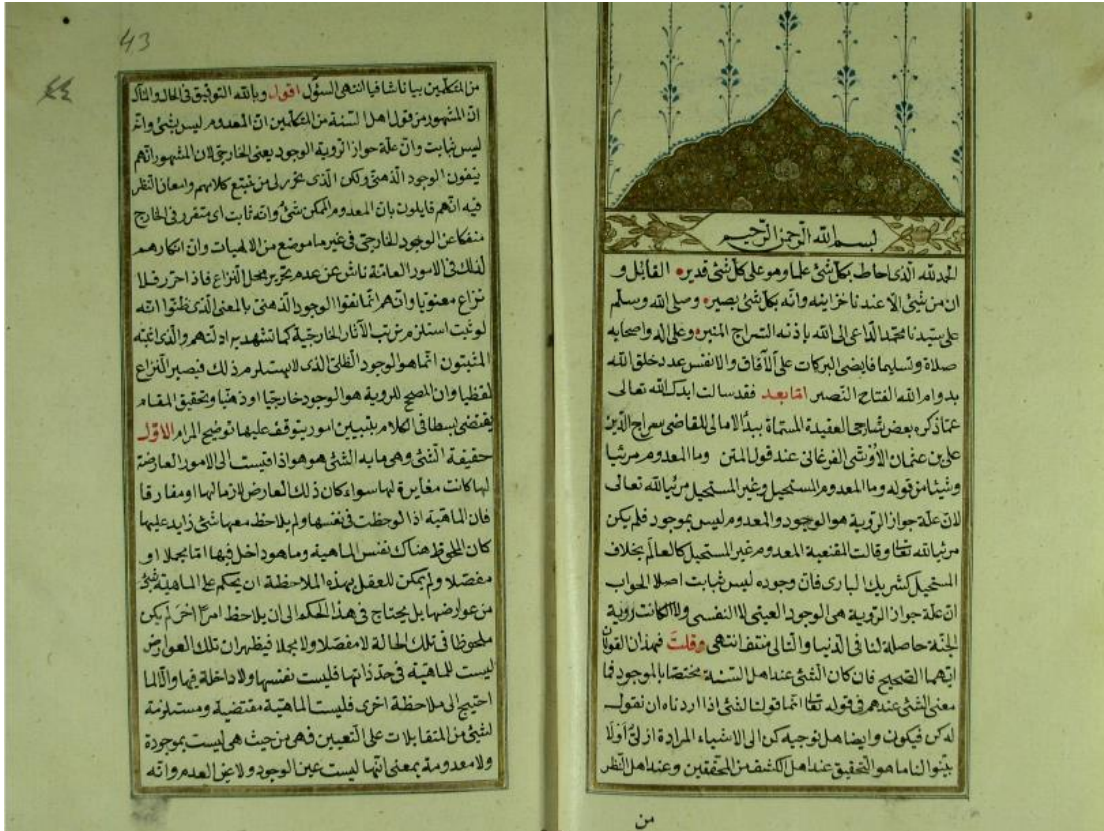 بسم الله الرحمن الرحيم
الحمد لله الذى احاط بكل شئ علما وهو على كل شئ قدير القائل و
ان من شئ الا عندنا خزاينه وانه بكل شئ بصير وصلى الله وسلم
على سيدنا محمد الداعى الى الله باذنه السراج المنير وعلى اله واصحابه
صلاة وتسليما فايضى البركات على الآفاق والانفس عدد خلق الله
بدوام الله الفتاح النصير اما بعد فقد سالت ايدك الله تعالى
عما ذكره بعض شارحى العقيدة المسماة ببدأ الامالى للقاضى سراج الدين
على بن عثمان الاوشى الفرغانى عند قول المتن وما المعدوم مرئيا
وشيئا من قوله وما المعدوم المستحيل وغير المستحيل مرئيا لله تعالى
لان علة جواز الروية هو الوجود والمعدوم ليس بموجود فلم يكن
مرئيا لله تعا وقالت المقنعية المعدوم غير المستحيل كالعالم بخلاف
المستحيل كشريك البارى فان وجوده ليس ثابت اصلا الجواب
ان علة جواز الروية هى الوجود العينى لا النفسى والا لكانت روية
الجنة حاصلة لنا فى الدنيا والتالى منتف انتهى وقلت فهذان القولان
ايهما الصحيح فان كان الشئ عند اهل السنة مختصا بالموجود فما
معنى الشئ عندهم فى قوله تعا انما قولنا لشئ اذا اردناه ان نقول
له كن فيكون وايضا هل توجيه كن الى الاشياء المرادة ازلى اولا
بينوا لنا ما هو التحقيق عند اهل الكشف من المحققين وعند اهل النظر
من
43
٤٤
من المتكلمين بيانا شافيا انتهى السؤل اقول وبالله التوفيق فى الحال والمآل
ان المشهور من قول اهل السنة من المتكلمين ان المعدوم ليس بشئ وانه
ليس ثابت وان علة جواز الروية الوجود يعنى الخارجى لان المشهور انهم
ينفون الوجود الذهنى ولكن الذى تحرر لى من تتبع كلامهم وامعان النظر
فيه انهم قايلون بان المعدوم الممكن شئ وانه ثابت اى متقرر فى الخارج
منفكا عن الوجود الخارجى فى غير ما موضع من الالهيات وان انكارهم
لذلك فى الامور العامة ناش عن عدم تحرير محل النزاع فاذا حرر فلا
نزاع معنويا وانهم انما نفوا الوجود الذهنى بالمعنى الذى ظنوا انه
لو ثبت استلزم ترتب الآثار الخارجية كما تشهد به ادلتهم والذى اثبته
المثبتون انما هو الوجود الظلى الذى لا يستلزم ذلك فيصير النزاع
لفظيا وان المصحح للروية هو الوجود خارجيا او ذهنيا وتحقيق المقام
يقتضى بسطا فى الكلام بتبيين امور يتوقف عليها توضيح المرام الاول
حقيقة الشئ وهى ما به الشئ هو هو اذا قيست الى الامور العارضة
لها كانت مغايرة لها سواء كان ذلك العارض لازما لها او مفارقا
فان الماهية اذا لوحظت فى نفسها ولم يلاحظ معها شئ زايد عليها
كان الملحوظ هناك نفس الماهية وما هو داخل فيها اما مجملا او
مفصلا ولم يمكن للعقل بهذه الملاحظة ان يحكم على الماهية بشئ
من عوارضها بل يحتاج فى هذا الحكم الى ان يلاحظ امرا آخر لم يكن
ملحوظا فى تلك الحالة لا مفصلا ولا مجملا فيظهر ان تلك العوارض
ليست للماهية فى حد ذاتها فليست نفسها ولا داخلة فيها والا لما
احتيج الى ملاحظة اخرى فليست الماهية مقتضية ومستلزمة
لشئ من المتقابلات على التعيين فهى من حيث هى ليست بموجودة
ولا معدومة بمعنى انها ليست عين الوجود ولا عين العدم وانه